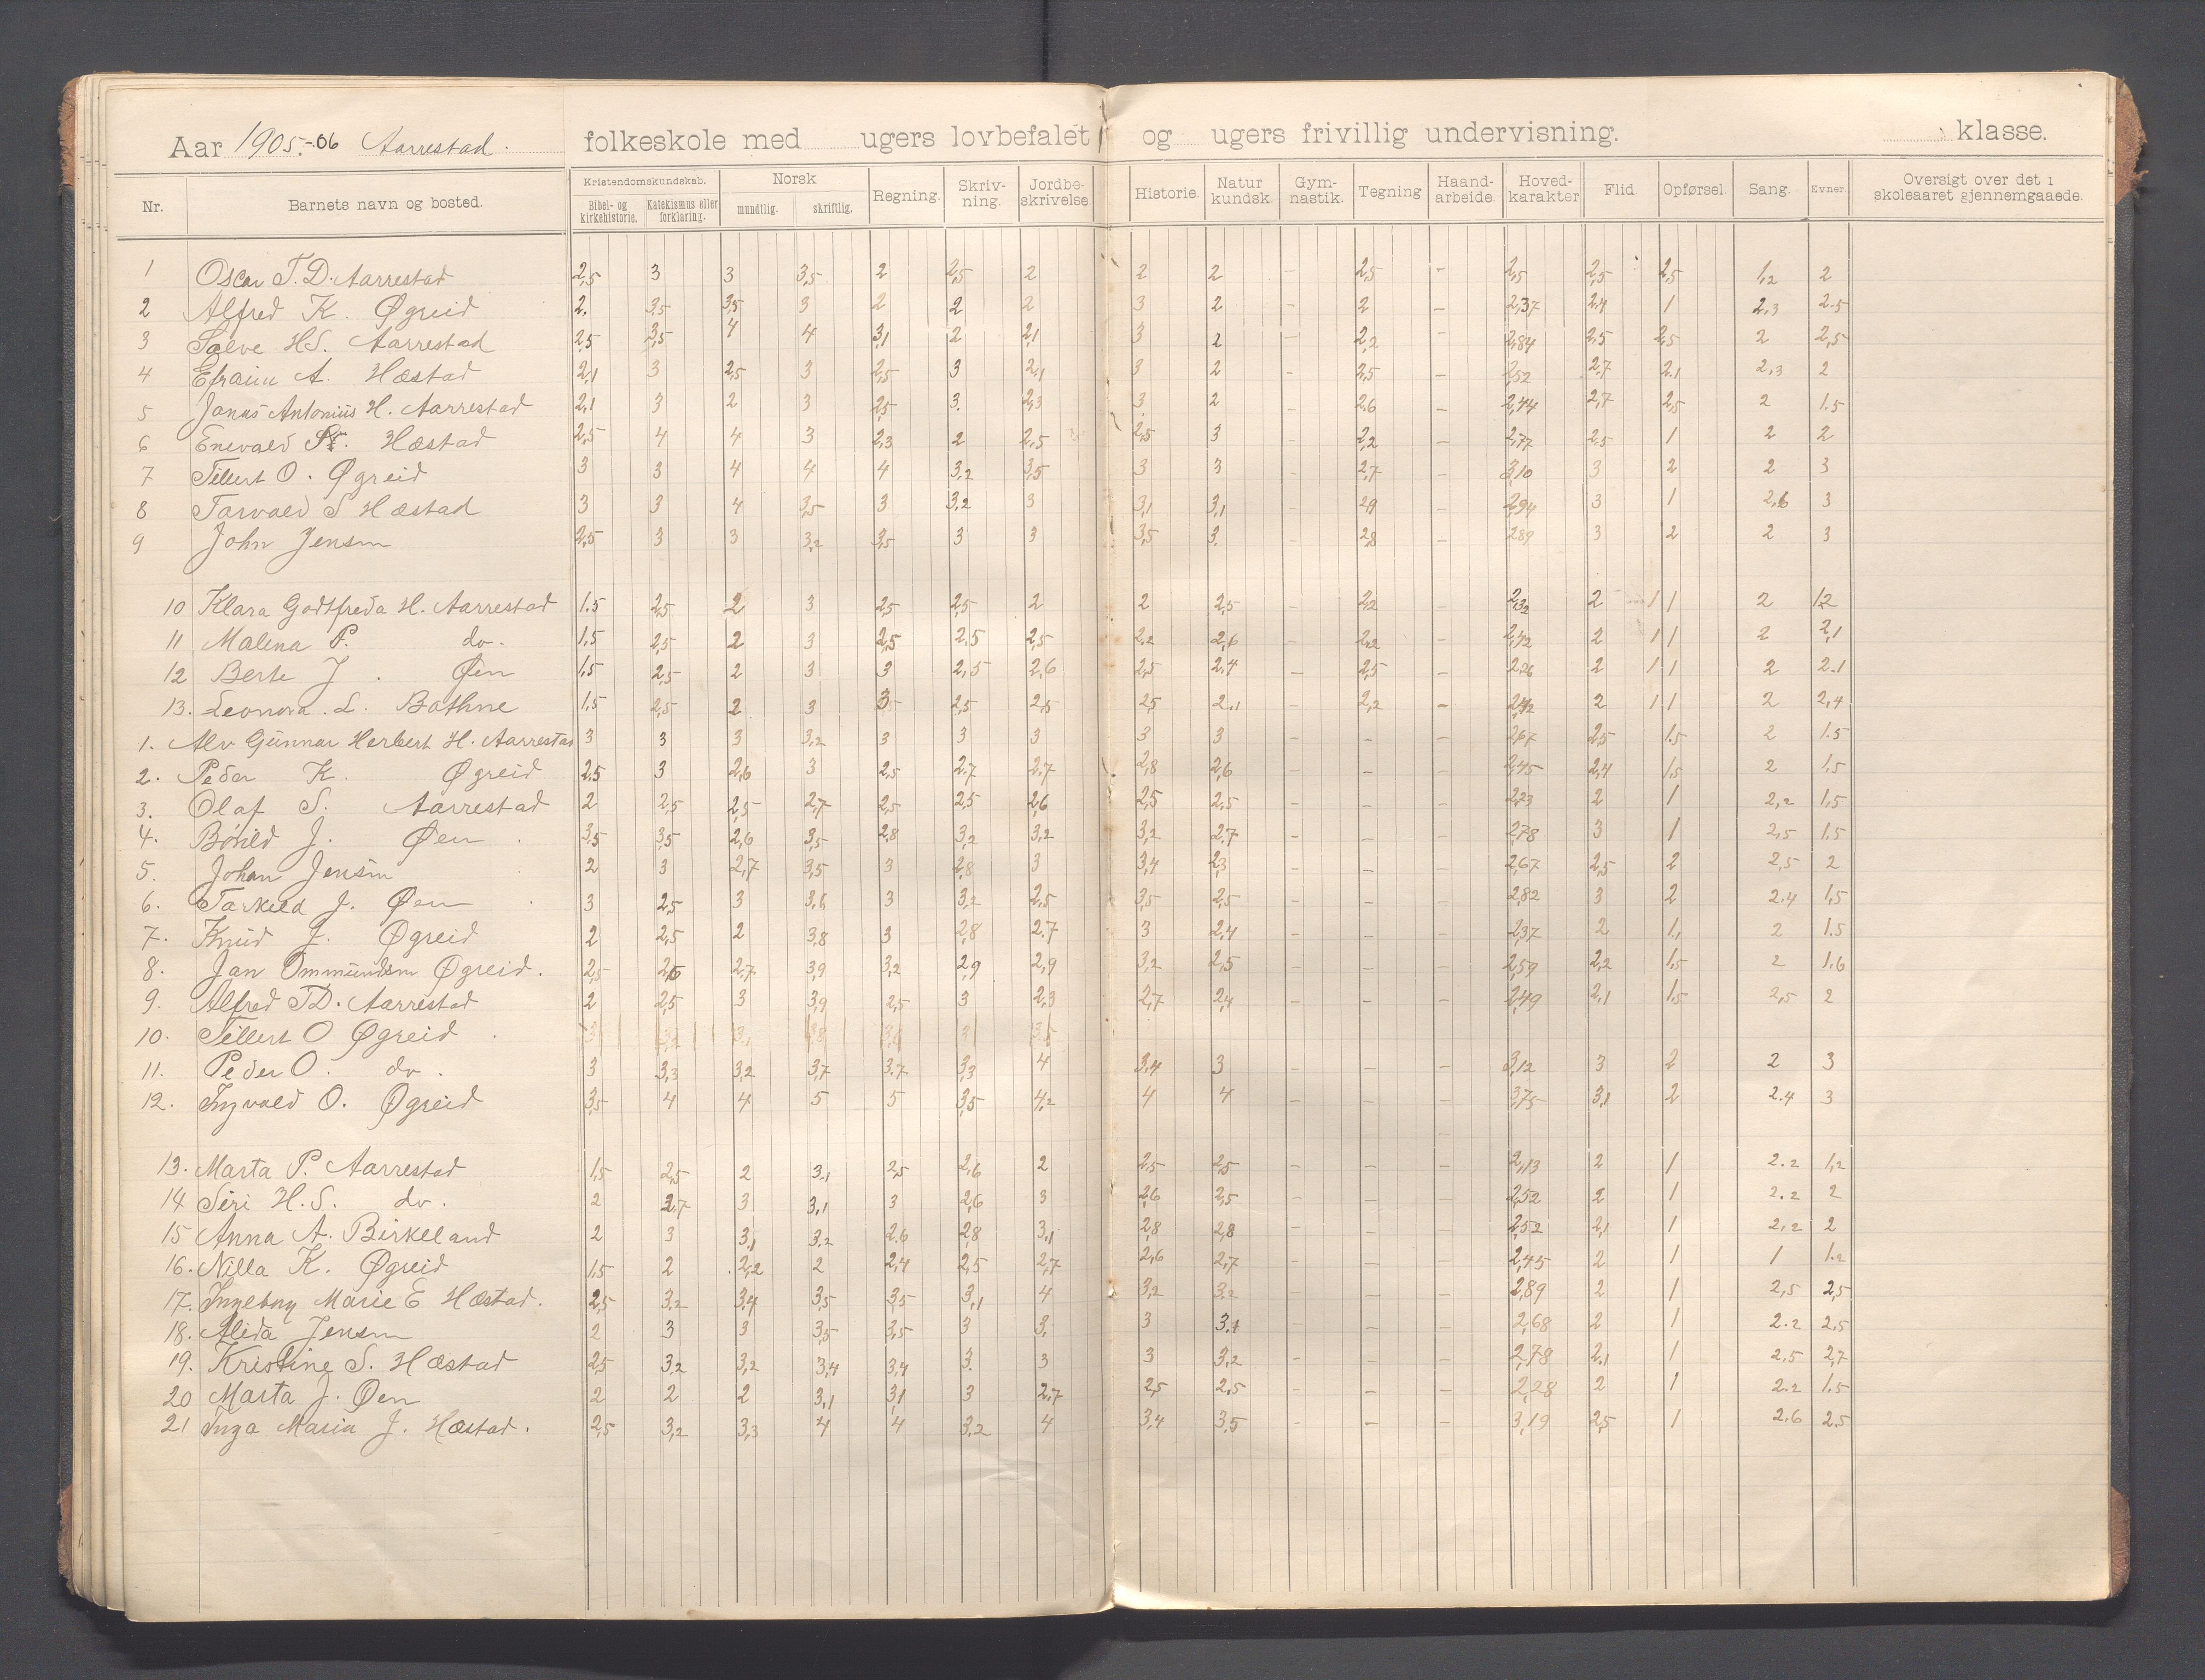 Aar 1905-06 Aarrestad. folkeskole med ugers lovbefalet og ugers frivillig undervisning. klasse.
Nr. Barnets navn og bosted. Kristendomskundskab. Bibel- og kirkehistorie. Katekismus eller forklaring. Norsk mundtlig. skriftlig. Regning. Skriv-ning. Jordbe-skrivelse. Historie. Natur kundsk. Gym-nastik. Tegning Haand-arbeide. Hoved-karakter Flid. Opførsel. Sang. Evner. Oversigt over det i skoleaaret gjennemgaaede.
1 Oscar T. D. Aarrestad 2,5 3 3 3,5 2 2,5 2 2 2 - 2,5 - 2,5 2,5 2,5 1,2 2
2 Alfred K. Øgreid 2. 3,5 3,5 3 2 2 2 3 2 - 2 - 2,37 2,4 1 2,3 2.5
3 Salve H.S. Aarrestad 2,5 3,5 4 4 3,1 2 2,1 3 2 - 2,2 - 2,84 2,5 2,5 2 2,5
4 Efraim A. Hæstad 2,1 3 2,5 3 2,5 3 2,1 3 2 - 2,5 - 2,52 2.7 2.1 2,3 2
5 Janus Antonius H. Aarrestad 2,1 3 2 3 2,5 3. 2,3 3 2 - 2,6 - 2,44 2,7 2,5 2 1.5
6 Enevald St. Hæstad 2,5 4 4 3 2,3 2 2,5 2,5 3 - 2,2 - 2,77 2,5 1 2 2
7 Tillert O. Øgreid 3 3 4 4 4 3,2 3,5 3 3 - 2,7 - 3,10 3 2 2 3
8 Tarvald S Hæstad 3 3 4 3,5 3 3,2 3 3,1 3,1 - 2,9 - 2,94 3 1 2,6 3
9 John Jensen 2,5 3 3 3,2 3,5 3 3 3,5 3. - 2,8 - 2,89 3 2 2 3
10 Klara Godtfreda H. Aarrestad 1.5 2,5 2 3 2,5 2,5 2 2 2,5 - 2,2 - 2,32 2 1 1 2 1,2
11 Malena P. do. 1,5 2,5 2 3 2,5 2.5 2,5 2.2 2,6 - 2,2 - 2,42 2 1 1 2 2,1
12 Berte J. Øen 1,5 2,5 2 3 3 2,5 2,6 2,5 2.4 - 2,5 - 2,26 2 1 1 2 2.1
13. Leonora. L. Bathne 1,5 2,5 2 3 3 2,5 2,5 2,5 2.1 - 2,2 - 2 1 1 2 2,4
1. Alv Gunnar Herbert H. Aarrestad 3 3 3 3,2 3 3 3 3 3 - - - 2,67 2,5 1.5 2 1.5
2. Peder K. Øgreid 2,5 3 2,6 3 2,5 2.7 2.7 2,8 2,6 - - - 2,45 2,4 1,5 2 1,5
3. Olaf S. Aarrestad 2 2,5 2,5 2,7 2,5 2,5 2,6 2,5 2,5 - - - 2,23 2 1 2,2 1,5
4. Børild J. Øen 3,5 3,5 2,6 3,5 2,8 3,2 3,2 3,2 2.7 - - - 2,78 3 1 2,5 1,5
5. Johan Jensen 2 3 2,7 3,5 3 2,8 3 3,4 2,3 - - - 2,67 2,5 2 2,5 2
6. Tarkeld J. Øen 3 2,5 3 3,6 3 3,2 2,5 3,5 2,5 - - - 2,82 3 2 2.4 1,5
7. Knud J. Øgreid 2 2,5 2 3,8 3 2,8 2.7 3 2,4 - - - 2,37 2 1,1 2 1.5
8. Jan Ommundsen Øgreid. 2,5 2,6 2.7 3,9 3,2 2,9 2,9 3,2 2,5 - - - 2,59 2,2 1,5 2 1,6
9. Alfred T.D. Aarrestad 2 2,5 3 3,9 2,5 3 2,3 2,7 2,4 - - - 2,49 2,1 1,5 2,5 2
10. Tillert O Øgreid
11. Peder O. do. 3 3,3 3,2 3,7 3.7 3,3 4 3,4 3 - - - 3,12 3 2 2 3
12. Ingvald O. Øgreid 3,5 4 4 5 5 3,5 4,2 4 4 - - - 3,75 3,1 2 2.4 3
13. Marta P. Aarrestad 1,5 2,5 2 3,1 2,5 2,6 2 2,5 2,5 - - - 2,13 2 1 2.2 1,2
14 Siri H.S. do. 2 2,7 3 3,1 3 2,6 3 2,6 2,5 - - - 2,52 2 1 2.2 2
15 Anna A. Birkeland 2 3 3,1 3.2 2.6 2,8 3,1 2,8 2,8 - - - 2,52 2,1 1 2,2 2
16. Nilla K. Øgreid 1,5 2 2,2 2 2,4 2,5 2,7 2,6 2,7 - - - 2,45 2 1 1 1.2
17. Ingeborg Marie E Hæstad. 2,5 3,2 3,4 3,5 3,5 3,1 4 3,2 3,2 - - - 2,89 2 1 2,5 2,5
18. Alida Jensen 2 3 3 3,5 3,5 3 3. 3 3.1 - - - 2,68 2 1 2.2 2.5
19. Kristine S. Hæstad 2,5 3,2 3,2 3,4 3,4 3. 3 3 3,2 - - - 2,78 2,1 1 2.5 2,7
20 Marta J. Øen 2 2 2 3,1 3,1 3 2.7 2,5 2,5 - - - 2,28 2 1 2.2 1.5
21 Inga Maria J. Hæstad. 2,5 3,2 3,3 4 4 3,2 4 3,4 3,5 - - - 3,19 2,5 1 2.6 2.5